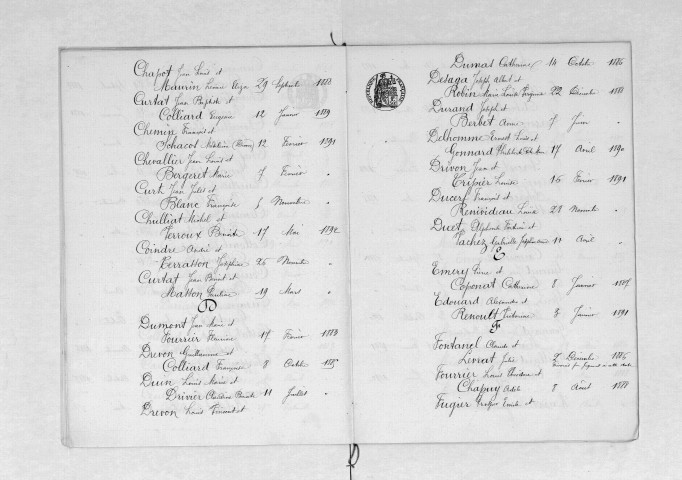 Chapot Jean Louis et
Maurin Louise Eliza 29 Septembre 1888
Curtat Jean Baptiste et
Colliard Eugénie 12 Janvier 1889
Chemin François et
Sohacot 12 Février 1891
Chevallier Jean Louis et
Bergeret Marie 7 Février "
Curt Jean Jules et
Blanc Françoise 5 Novembre "
Chulliat Michel et
Verroux Benoite 17 Mai 1892
Coindre André et
Terrasson Joséphine 26 Novembre "
Curtat Jean Benoit et
Matton Pauline 19 Mars "
D
Dumont Jean Marie et
Fourrier 17 Février 1883
Drevon Guillaume et
Colliard Françoise 8 Octobre 1885
Duin Louis Marie et
Drivier Claudine Benoite 11 Juillet "
Drevon Louis Vincent et
Dumas Catherine 14 Octobre 1886
Desaga Joseph Albert et
Robin Marie Louise Virginie 22 Décembre 1888
Durand Joseph et
Berbet Anne 7 "
Delhomme Ernest Louis et
Gonnard 17 Avril 1890
Drivon Jean et
Crépier Louise 15 Février 1891
Ducerf François et
Louise 21 Novembre "
Duet Alphonse et
Vachez Gabrielle Joséphine 11 Avril "
E
Emery Pierre et
Coponat Catherine 8 Janvier
Edouard Alexandre et
Renoult Victorine 3 Janvier 1891
F
Fontanel Claude et
Livrait Julie 2 Décembre 1886
Fourrier Louis Théodore et
Chapuy Adèle 8 Août 1888
Fugier Emile et